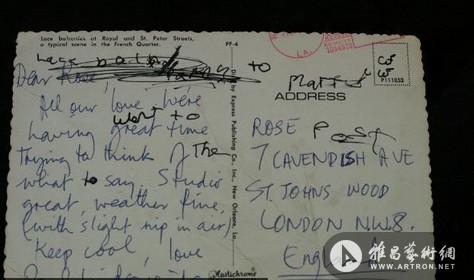 Lace balconies at Royal and St. Peter Streets,
a typical scene in the French Quarter.
FF-4
LA.
P111853
to
Dear Rose,
ADDRESS
All our love. We're
went to
having great time
Trying to think of The
what to say. Studio
great, weather fine,
(with slight nip in air)
Keep cool love
ROSE Post
7 CAVENDISH AVE
ST. JOHNS WOOD
LONDON N.W.8.
England
by Express Publishing Co., Inc., New Orleans, La.
Plastichrome
雅昌藝術網
WWW.ARTRON.NET